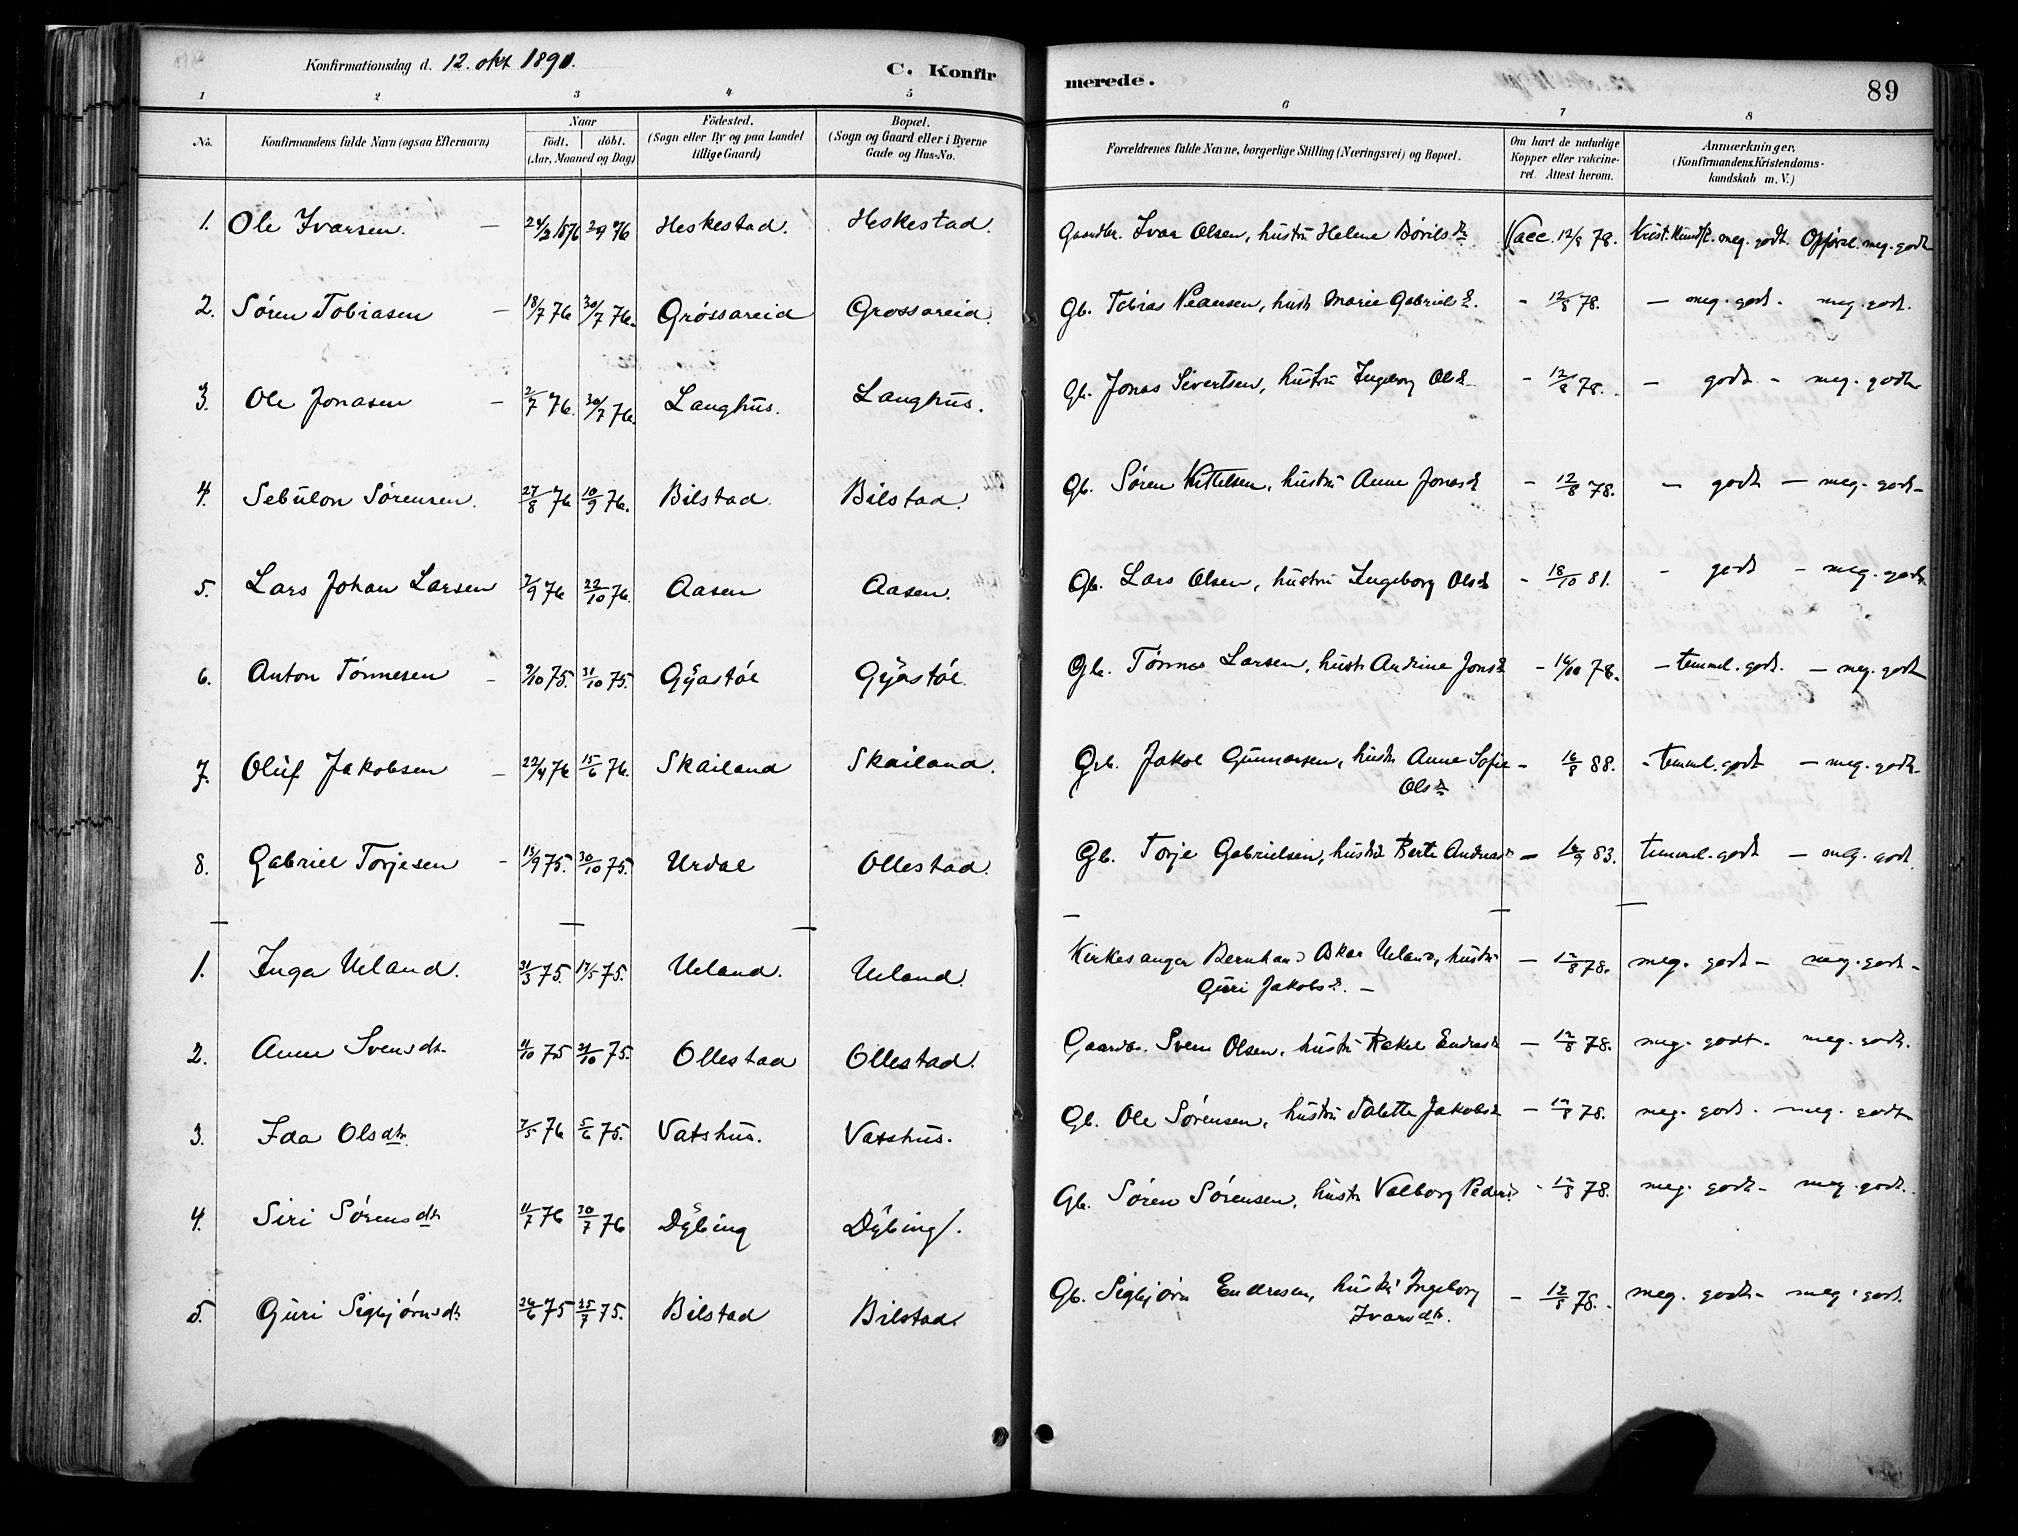 Konfirmationsdag d. 12. okt 1890.
C. Konfirmerede.
89
1 2 3 4 5 6 7 8
No. Konfirmandens fulde Navn (ogsaa Efternavn) Naar födt. döbt. (Aar, Maaned og Dag) Födested. (Sogn eller By og paa Landet tillige Gaard) Bopæl. (Sogn og Gaard eller i Byerne Gade og Hus-No. Forældrenes fulde Navne, borgerlige Stilling (Næringsvei) og Bopæl. Om havt de naturlige Kopper eller vakcineret. Attest herom. Anmærkninger. (Konfirmandens Kristendomskundskab m. V.)
1. Ole Ivarsen. 24/2 1876 Heskestad. Heskestad. Gaardbr. Ivar Olsen, hustru Helene Børilsdr Vacc. 12/8 78. Krist. Kundsk. meg. godt. Opførsl. meg. godt
2. Søren Tobiasen 18/7 76 30/7 76. Gróssareid Grossareid. Gb. Tobias Peansen, hust. Marie Gabrielsd. - 12/8 78. - meg. godt. meg. godt.
3. Ole Jonasen 2/7 76. 30/7 76. Langhus. Langhus. Gb. Jonas Sivertsen, hustru Ingeborg Olsd. - 12/8 78. - godt - meg. godt
4. Sebulon Sørensen. 27/8 76 10/9 76. Bilstad. Bilstad. Gb. Søren Kittelsen, hustru Anne Jonasd - 12/8 78. - godt - meg. godt
5. Lars Johan Larsen 7/9 76 22/10 76. Aasen Aasen. Gb. Lars Olsen, hustru Ingeborg Olsd - 18/10 81. - godt - meg. godt.
6. Anton Tönnesen 9/10 75. 31/10 75. Gÿastöl Gÿastöl. Gb. Tönnes Larsen, hustr Andrine Jonsd - 16/10 78. - temml. godt. - meg. godt
7. Oluf Jakobsen 22/4 76 15/6 76. Skailand Skailand. Gb. Jakob Gunnarsen, hustr Anne Sofie - 16/8 88. - temml. godt - meg. godt.
Olsd
8. Gabriel Torjesen 18/9 75. 30/10 75. Urdal Ollestad. Gb. Torje Gabrielsen, hustru Berte Andreasd - 16/9 83. temml. godt - meg. godt.
1. Inga Ueland. 31/3 75. 17/5 75. Ueland. Ueland. Kirkesanger Bernhard Oskar Ueland, hustru - 12/8 78. meg. godt - meg. godt -
Guri Jakobsd. -
2. Anne Svensdt. 11/10 75 31/10 75. Ollestad Ollestad. Gaardbr. Sven Olsen, hustru Rakel Endresd - 12/8 78. meg. godt. meg. godt.
3. Ida Olsdtr. 7/5 76 5/6 75. Vatshus. Vatshus. Gb. Ole Sørensen, hustru Talette Jakobsd - 12/8 78. meg. godt. meg. godt
4. Siri Sørensdt. 11/7 76 30/7 76 Dÿbing Dÿbing. Gb. Søren Sørensen, hustr Valborg Pedersd - 12/8 78. meg. godt - meg. godt.
5. Guri Sigbjørnsdt. 26/6 75 25/7 75. Bilstad Bilstad. Gb. Sigbjørn Endresen, hustru Ingeborg - 12/8 78. meg. godt - meg. godt.
Ivarsdtr.